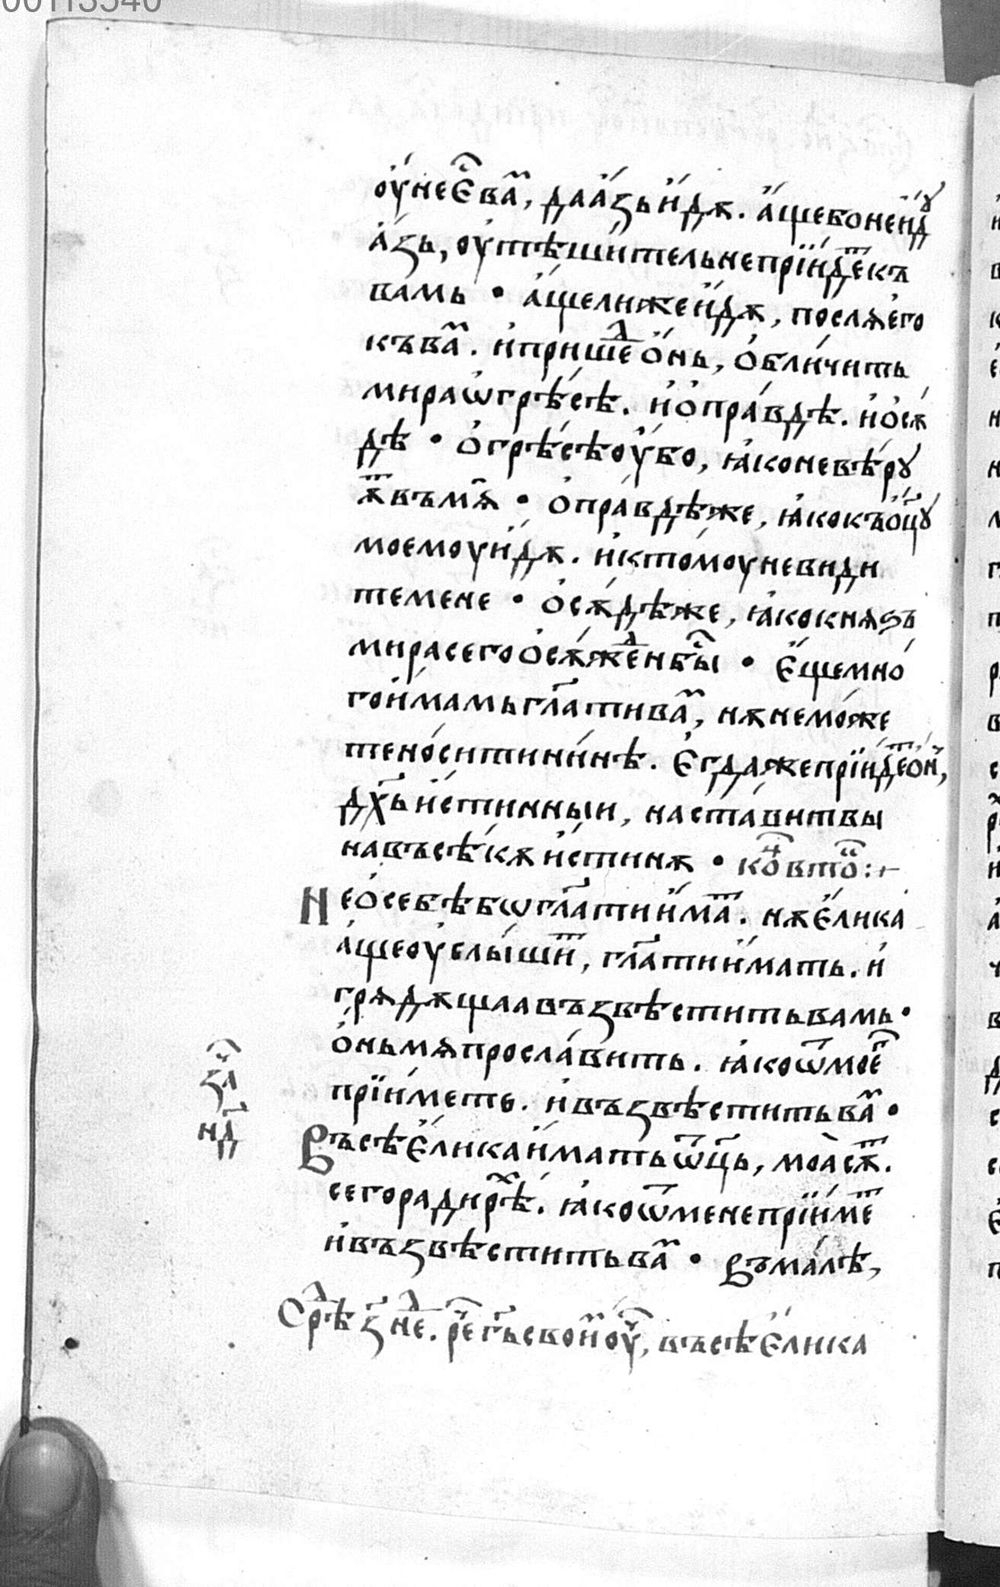 00113540
оу҆нее҆ⷭ҇ваⷨ, даа҆́зьи҆́дѫ. а҆́щебонеи҆́дꙋ
а҆́зь, оу҆тѣши́тельнепрїи́деⷮкъ
вамь • а҆́щелижеи҆́дѫ, послѧе҆го
къваⷨ. и҆пришеⷣ о҆́нь, о҆бли́чить
мираѡ҆грѣ́сѣ. и҆ о҆пра́вдѣ. и҆ о҆сѫ́
дѣ • о҆грѣ́сѣоу҆́бо, ꙗ҆коневѣ́рꙋ
ѫⷮвъмѧ̀ • о҆пра́вдѣже, ꙗ҆кокъо҆ц҃ꙋ
моемоуи҆́дѫ. и҆ктомоуневиди
темене • о҆сѫ́дѣже, ꙗ҆кокнѧѕъ
мирасегоо҆сѫжеⷣнбыⷭ҇ • е҆щемно́
гои҆мамьгл҃ативаⷨ, нѫнемо́же
тено́ситини́нѣ. е҆гдажепрїи́деⷮо҆́нⸯ,
дх҃ьи҆́стинныи, наста́витвы
навъсѣ́кѫи҆́стинѫ • коⷩ҇вто:+
Нео҆себѣбѡгл҃атии҆маⷮ. нѫе҆́лика
а҆́щеоу҆слы́шиⷮ, гл҃атии҆́мать. и҆
грѧдѫщаавъзвѣститьвамь•
о҆́ньмѧпросла́вить. ꙗ҆коѿмоеⷢ҇
прїи́меть. и҆възвѣститьваⷨ •
заⷱ҇
нд҃
Въсѣе҆́ликаи҆́матьѿц҃ь, моа̀сѫⷮ.
сегорадирⷯѣ. ꙗ҆коѿменепрїи́меⷮ
и҆възвѣститьваⷨ • въмалѣ,
Срⷣѣ з҃ неⷣ. реⷱ҇ г҃ьсвоиⷨоу҆ⷱ҇, въсѣе҆́лика